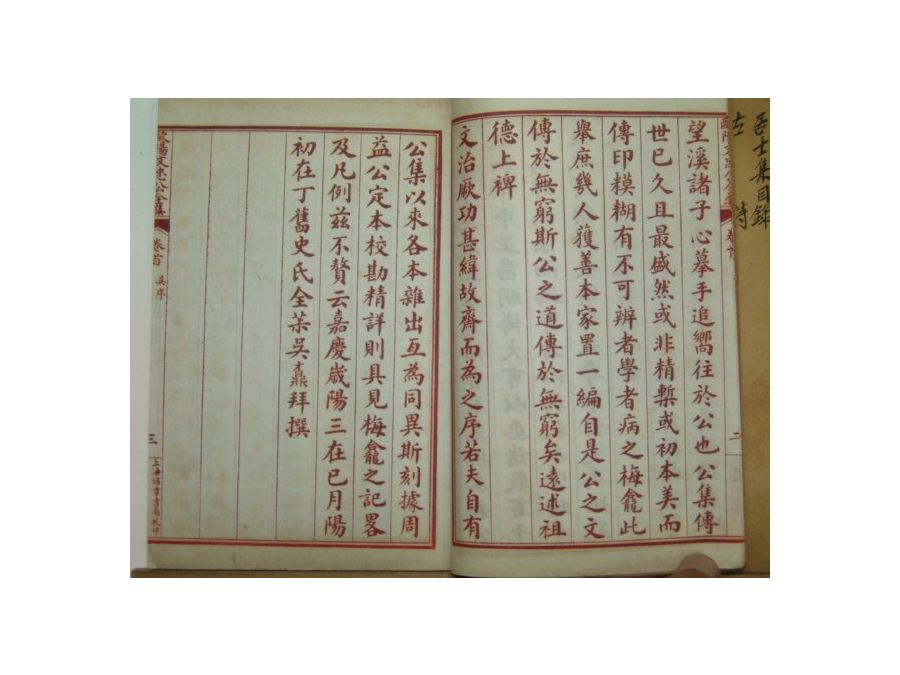 望溪諸子心摹手追嚮往於公也公集傳
世已久且最盛然或非精槧或初本美而
傳印糢糊有不可辨者學者病之梅龕此
舉庶幾人獲善本家置一編自是公之文
傳於無窮斯公之道傳於無窮矣遠述祖
德上裨
文治厥功甚緯故齋而為之序若夫自有
公集以來各本雜出互為同異斯刻據周
益公定本校勘精詳則具見梅龕之記畧
及凡例茲不贅云嘉慶歲陽三在已月陽
初在丁舊史氏全茮吳鼒拜撰
歐陽文忠公全集
卷首
吳序
三
上海錦章書局校印
吾士集目錄
古詩